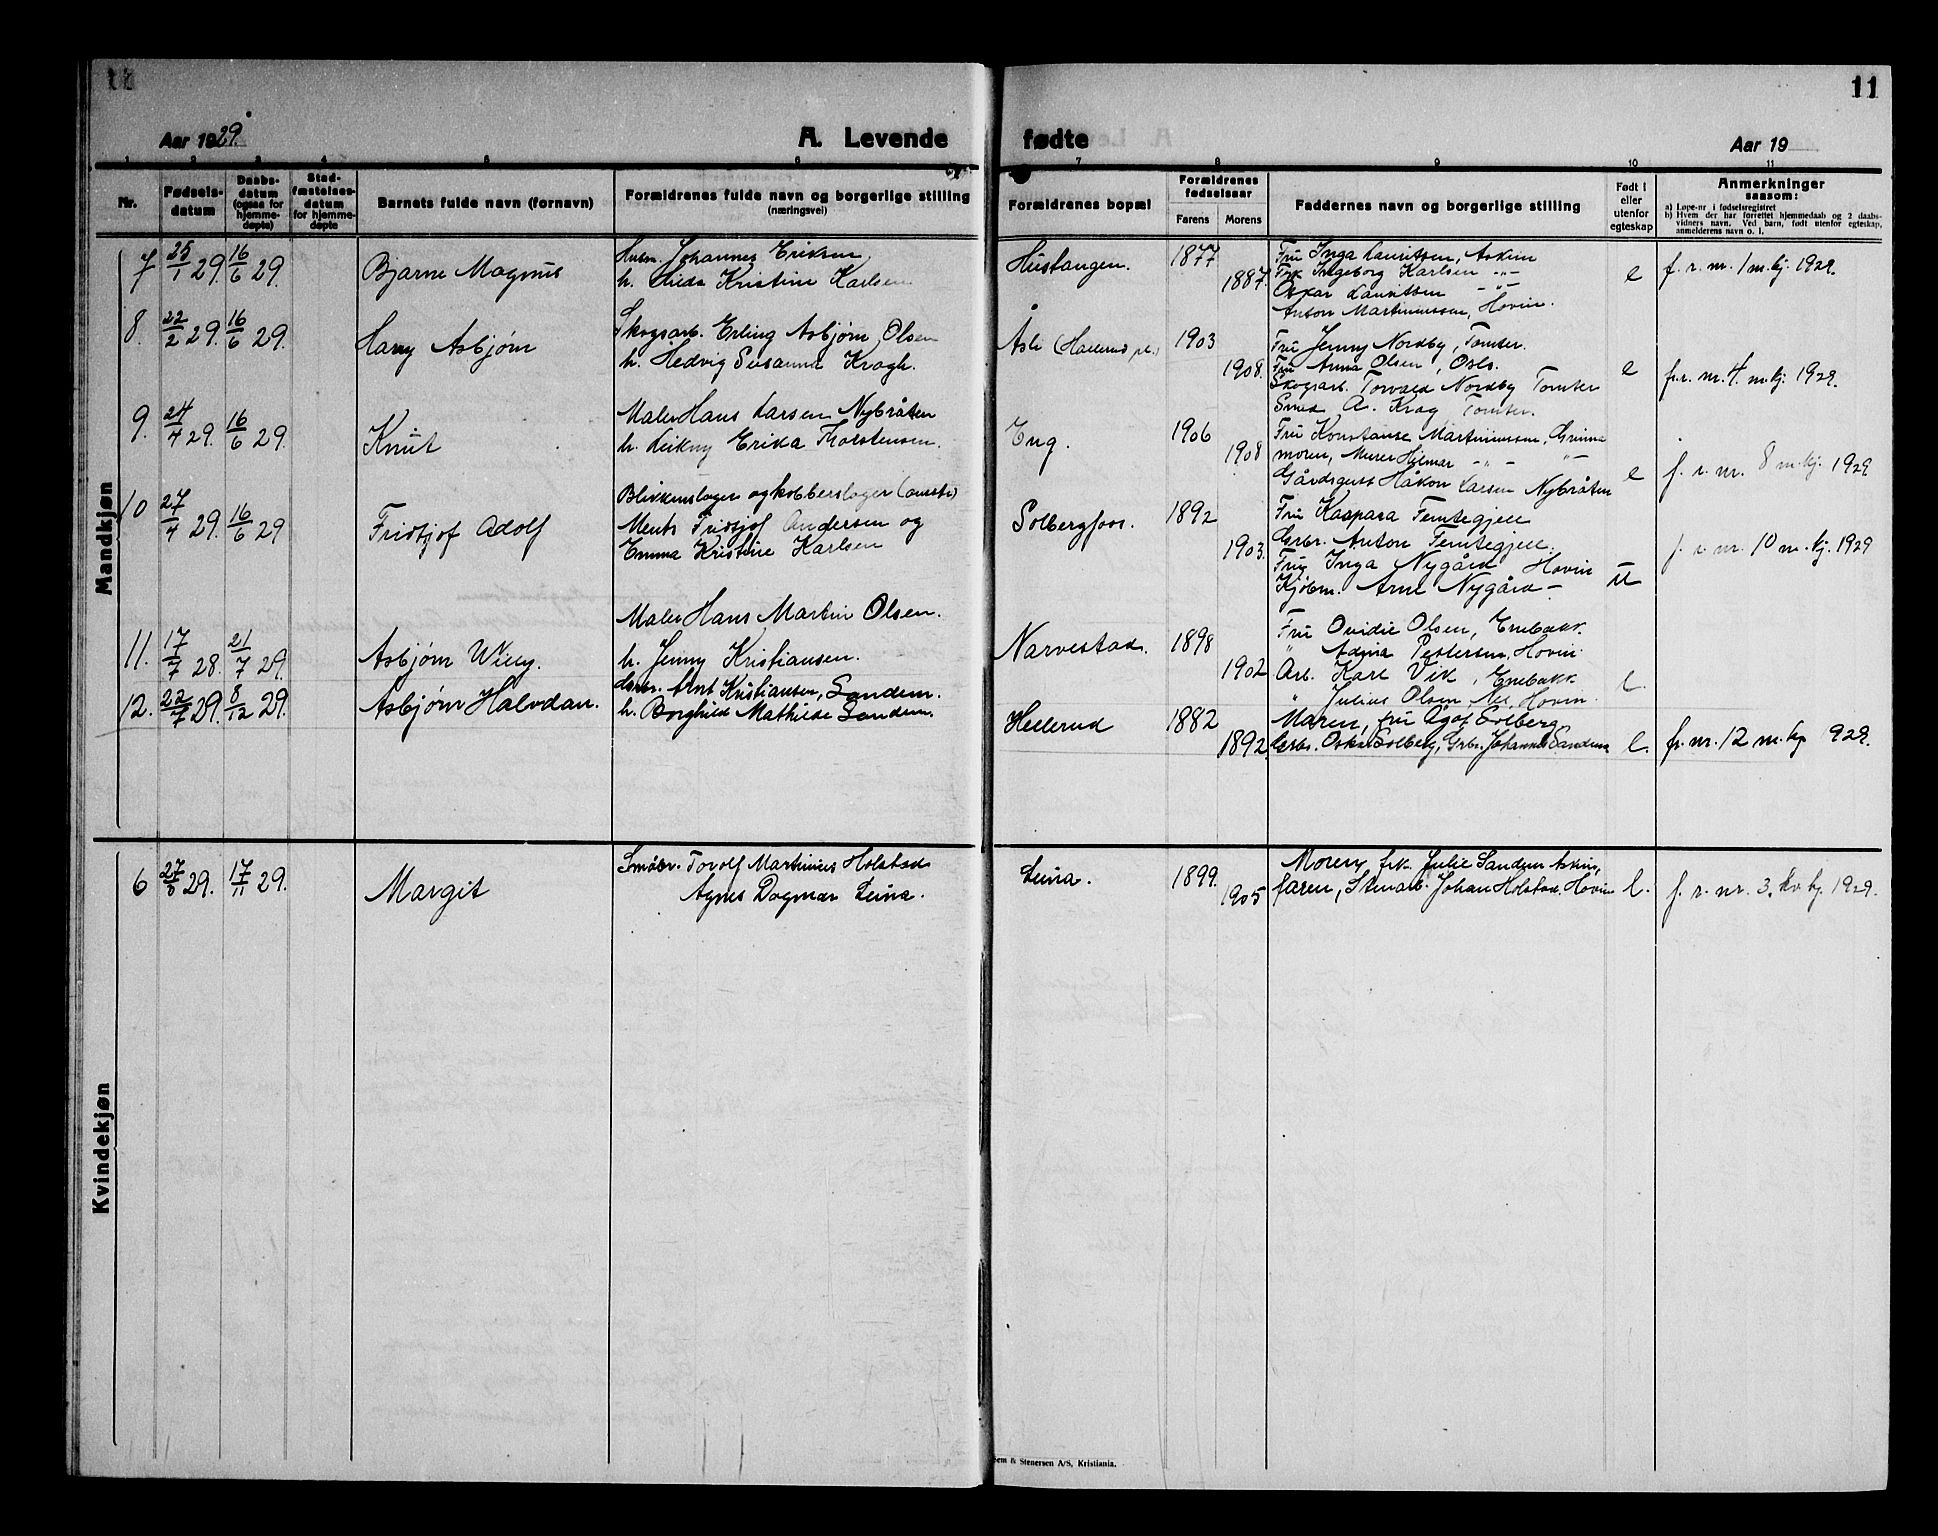 11
Aar 1929.
A. Levende
1 2 3 4 5 6
Nr.
Fødsels-
datum
Daabs-
datum
(ogsaa for
hjemme-
døpte)
Stad-
fæstelses-
datum
for hjemme-
døpte
Barnets fulde navn (fornavn)
Forældrenes fulde navn og borgerlige stilling
(næringsvei)
Mandkjøn
7 25/1 29. 16/6 29. Bjarne Magnus
Johannes Eriksen
h. Kristine Karlsen
8. 22/2 29. 16/6 29. Harry Asbjørn
Skogsarb. Erling Asbjørn Olsen
h. Hedvig Susanna Kragh.
9. 24/4 29. 16/6 29. Knut
Maler Hans Larsen Nybråten
h. Leikny Erika Thorstensen.
10 27/4 29. 16/6 29 Fridtjof Adolf
Blikkenslager og kobberslager
Fridtjof Andersen og
Emma Kristine Karlsen
11. 17/7 28. 21/7 29. Asbjørn Willy.
Maler Hans Martin Olsen.
h. Jenny Kristiansen.
12. 22/7 29. 8/12 29. Asbjørn Halvdan.
Gbr. Arnt Kristiansen, Sandem.
h. Borghild Mathilde Sandem.
Kvindekjøn
6 27/ 29. 17/11 29. Margit
Småbr. Torolf Martinius Holstad
Agnes Dagmar Leina.
11
fødte
Aar 19
7 8 9 10 11
Forældrenes bopæl
Forældrenes
fødselsaar
Farens Morens
Faddernes navn og borgerlige stilling
Født i
eller
utenfor
egteskap
Anmerkninger
saasom:
a) Løpe-nr i fødselsregistret
b) Hvem der har forrettet hjemmedaab og 2 daabs-
vidners navn. Ved barn, født utenfor egteskap,
anmelderens navn o. l.
Hustangen. 1877 1887.
Fru Inga Lauritsen, Askim
Frk Ingeborg Karlsen -"-
Oskar Lauritsen -"-
Anton Martinussen, Hovin.
e f. r. nr. 1 m.kj. 1929.
Åsli (Hallerud pl.) 1903 1908.
Fru Jenny Nordby, Tomter.
Fru Anna Olsen, Oslo.
Skogsarb. Torvald Nordby Tomter
Smed A. Krag Tomter.
e f. r. nr. 4. m.kj. 1929.
Eng. 1906 1908
Fru Konstanse Martinussen,
moren, Murer Hilmar -"- -"-
Gårdsgutt Håkon Larsen Nybråten
e f. r. nr. 8 m.kj. 1929
Solbergfoss. 1892 1903.
Fru Kaspara Femtegjeld
Gbr. Anton Femtegjeld.
Fru Inga Nygård Hovin
Kjøbm. Arne Nygård -
u f. r. nr. 10 m.kj. 1929
Narvestad. 1898 1902
Fru Ovidie Olsen, Enebakk.
" Pettersen, Hovin.
Arb. Karl Vik, Enebakk
" Julius Olsen Hovin
e.
Hellerud 1882 1892.
Moren, fru Solberg
Gbr. Oskar Solberg, Gbr. Johannes Sandem
e. f. r. nr. 12 m.kj 929.
Leina. 1899. 1905
Moren, frk. Julie Sandem Askim,
faren, Stenarb. Johan Holstad. Hovin
e. f. r. nr. 3. kv.kj. 1929.
& Stenersen A/S, Kristiania.